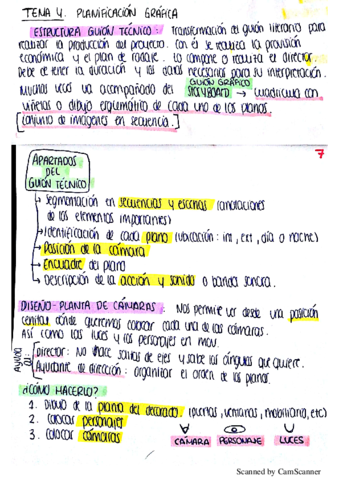 TEMA 4. PLANIFICACIÓN GRÁFICA
ESTRUCTURA GUIÓN TÉCNICO: transformación del guión literario para
realizar la producción del proyecto. Con él se realiza la provisión
económica y el plan de rodaje. Lo compone o realiza el director
Debe de tener la duración y los datos necesarios para su interpretación.
GUIÓN GRÁFICO
Muchas veces va acompañado del STORYBOARD → cuadrícula con
viñetas o dibujo esquemático de cada uno de los planos.
[conjunto de imágenes en secuencia.]
7
APARTADOS
DEL
GUIÓN TÉCNICO
→ Segmentación en secuencias y escenas (anotaciones
de los elementos importantes)
→ Identificación de cada plano (ubicación: int, ext, día o noche)
→ Posición de la cámara
→ Encuadre del plano
→ Descripción de la acción y sonido o banda sonora.
DISEÑO-PLANTA DE CÁMARAS: Nos permite ver desde una posición
cenital dónde queremos colocar cada una de las cámaras.
Así como las luces y los personajes en mov.
Ayuda a:
Director: No hace saltos de ejes y sabe los ángulos que quiere.
Ayudante de dirección: organizar el orden de los planos.
¿CÓMO HACERLO?
1. Dibujo de la planta del decorado. (puertas, ventanas, mobiliario, etc)
2. Colocar personajes
3. Colocar cámaras
CÁMARA PERSONAJE LUCES
Scanned by CamScanner